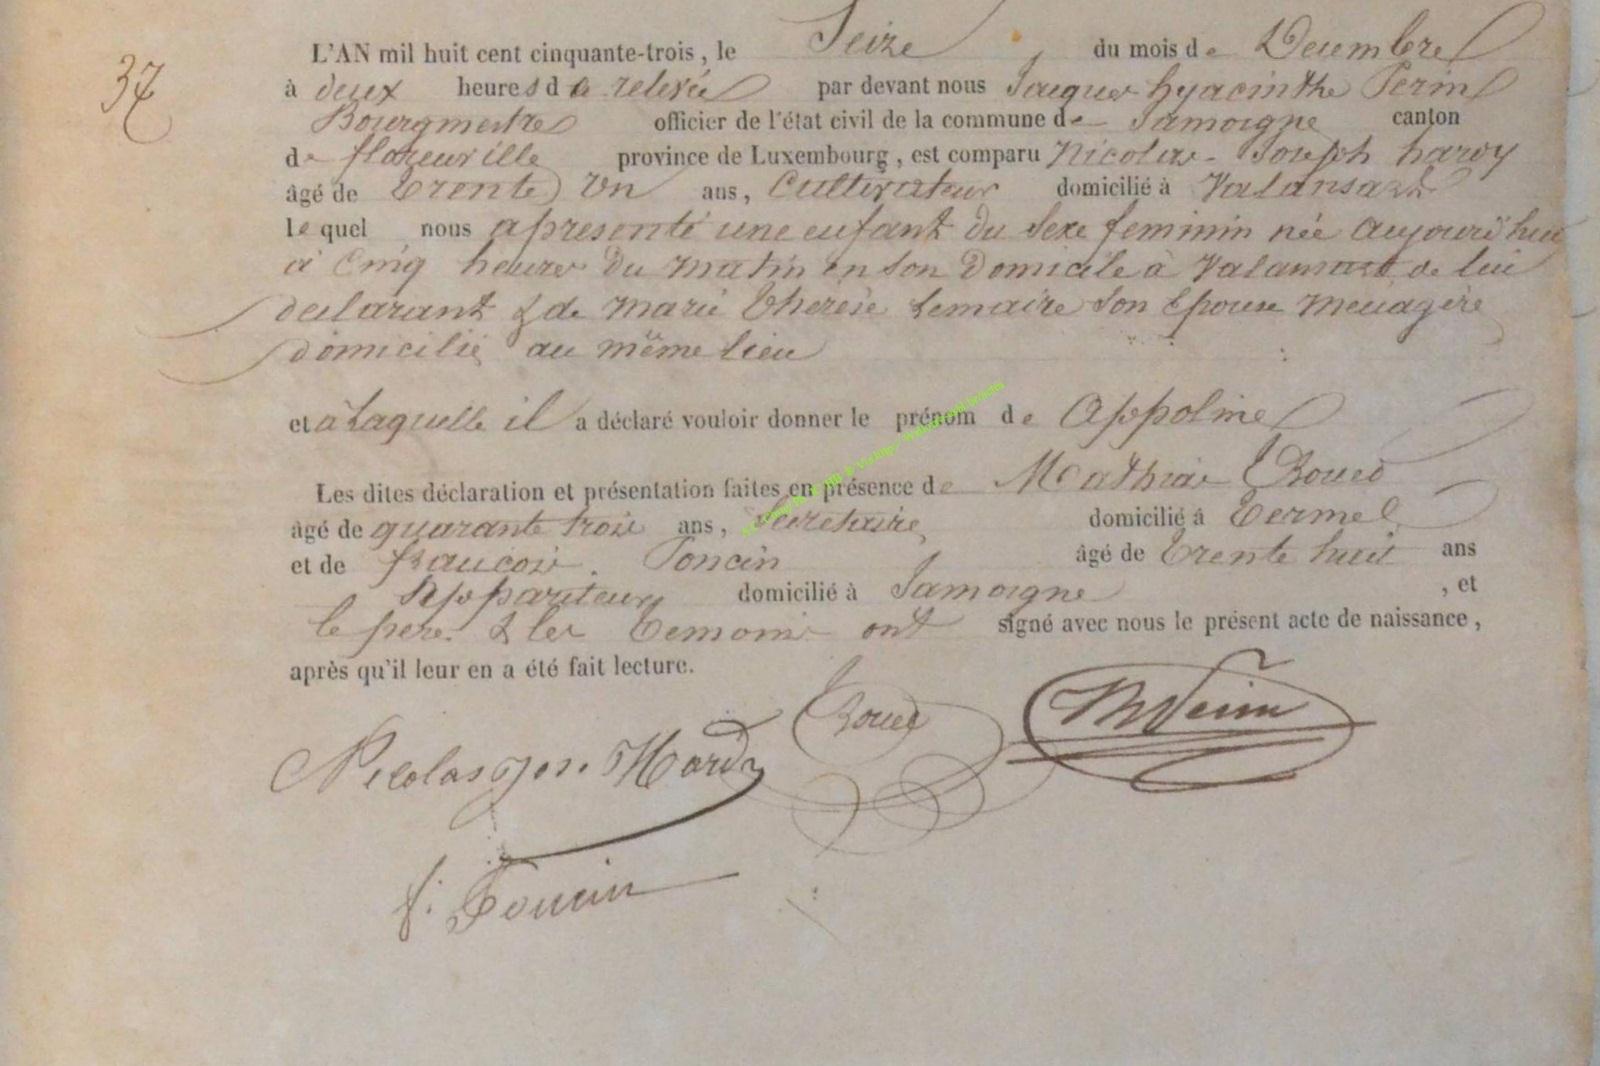 37
L'AN mil huit cent cinquante-trois, le Seize du mois de Decembre
à deux heures de relevée par devant nous Jacques hyacinthe Perin
Bourgmestre officier de l'état civil de la commune de Jamoigne canton
de florenville province de Luxembourg, est comparu Nicolas Joseph hardy
âgé de trente un ans, Cultivateur domicilié à Valansart
lequel nous a présenté une enfant du Sexe feminin née aujourd'hui
à Cinq heures du matin en Son Domicile à Valansart de lui
declarant & de marie therèse Lemaire Son Epouse menagère
domicilié au même lieu
et à Laquelle il a déclaré vouloir donner le prénom de Appoline
Les dites déclaration et présentation faites en présence de Mathias
âgé de quarante trois ans, Secretaire domicilié à termes
et de françois Poncin âgé de trente huit ans
Appariteur domicilié à Jamoigne, et
le pere & les temoins ont signé avec nous le présent acte de naissance,
après qu'il leur en a été fait lecture.
Nicolas Jos. Hardy
f. Poncin